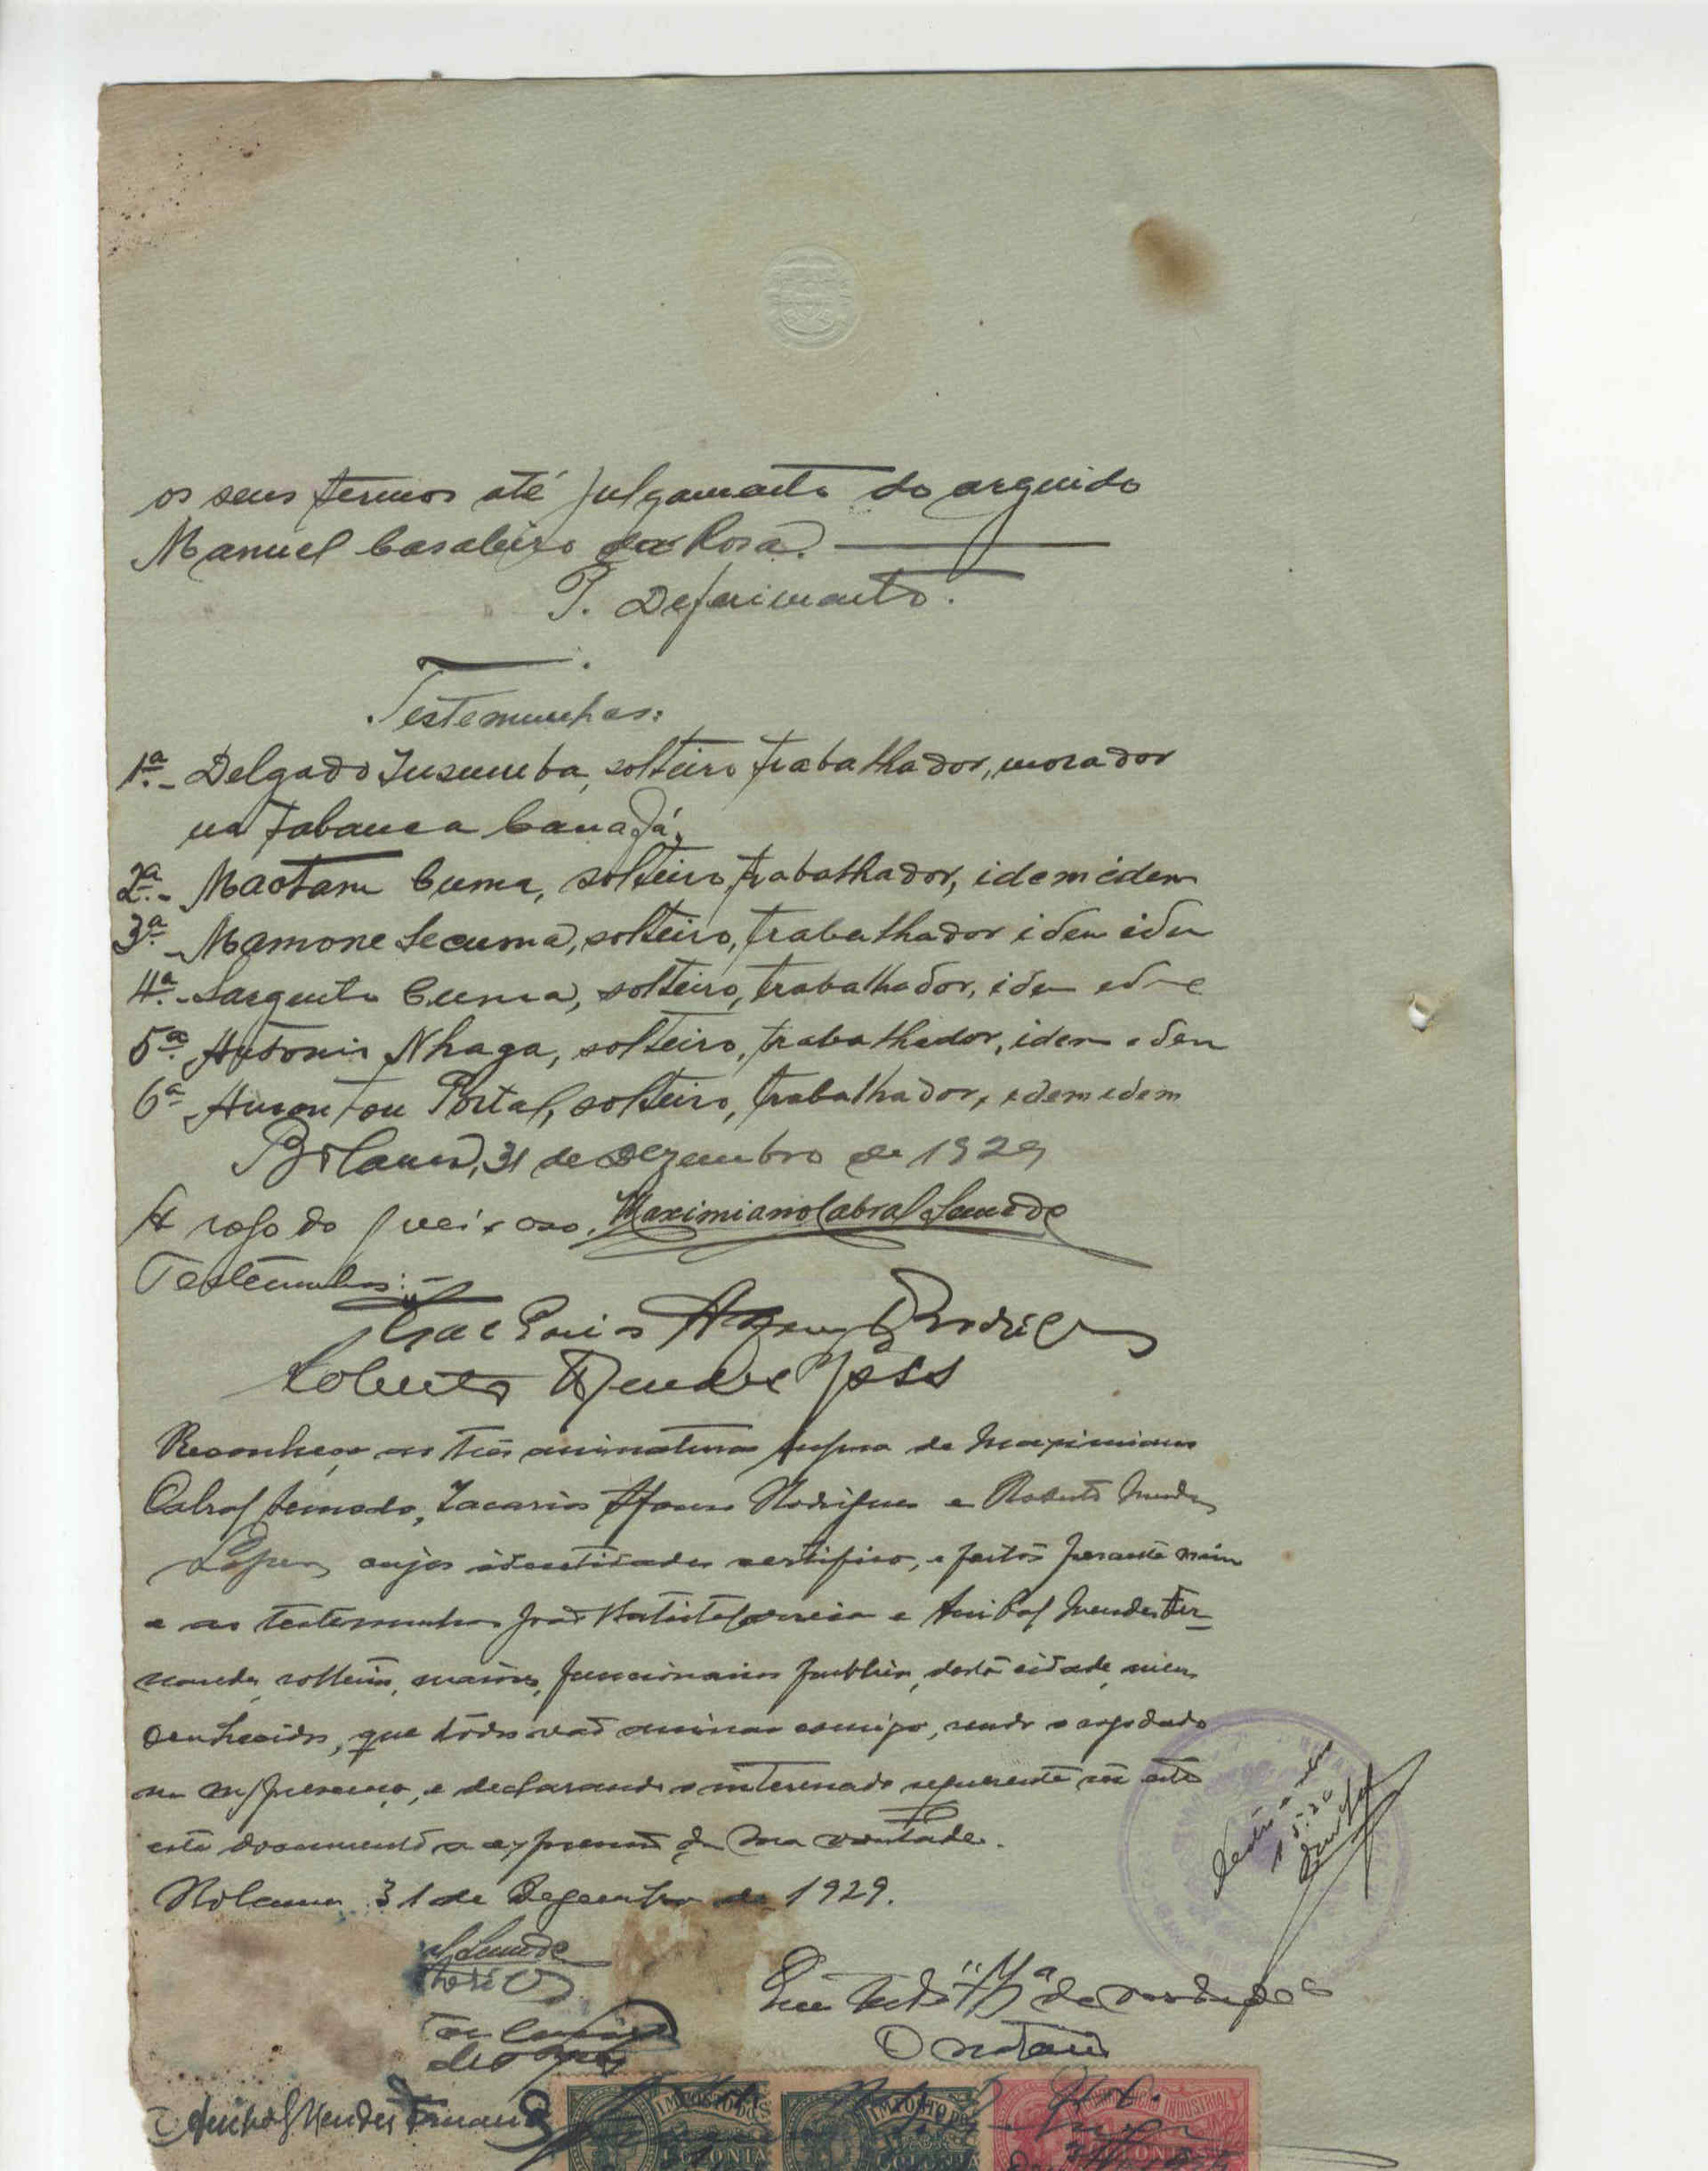 os seus termos até julgamento do arguido
Manuel Casaleiro da Rosa.
P. Deferimento.
Testemunhas:
1ª.- Delgado Insumba, solteiro, trabalhador, morador
na tabanca Canajá.
2ª.- Maotam Cuma, solteiro, trabalhador, idem idem
3ª.- Mamone Secuma, solteiro, trabalhador idem idem
4ª.- Sargento Cuma, solteiro, trabalhador, idem
5ª. António Nhaga, solteiro, trabalhador, idem idem
6ª Portal, solteiro, trabalhador, idem idem
Bolama, 31 de Dezembro de 1929
A rogo do queixoso, Maximiano Cabral Semedo
Testemunhas:-
Zacarias Afonso Rodrigues
Roberto Mendes Lopes
Reconheço as três assinaturas supra de Maximiano
Cabral Semedo, Zacarias Afonso Rodrigues e Roberto Mendes
Lopes, cujas identidades certifico, e feitas perante mim
e as testemunhas João Batista Correia e Anibal Mendes Fer-
nandes, solteiros, maiores, funcionarios publicos, desta cidade, meus
conhecidos, que todos vão assinar comigo, sendo o rogo dado
na m/presença, e declarando o interessado requerente ser este
este documento a expressão da sua vontade.
Bolama 31 de Dezembro de 1929.
Semedo
O notario
Anibal Mendes Fernandes
IMPOSTO DO S
COLONIA
IMPOSTO DO S
COLONIA
CONTRIBUIÇÃO INDUSTRIAL